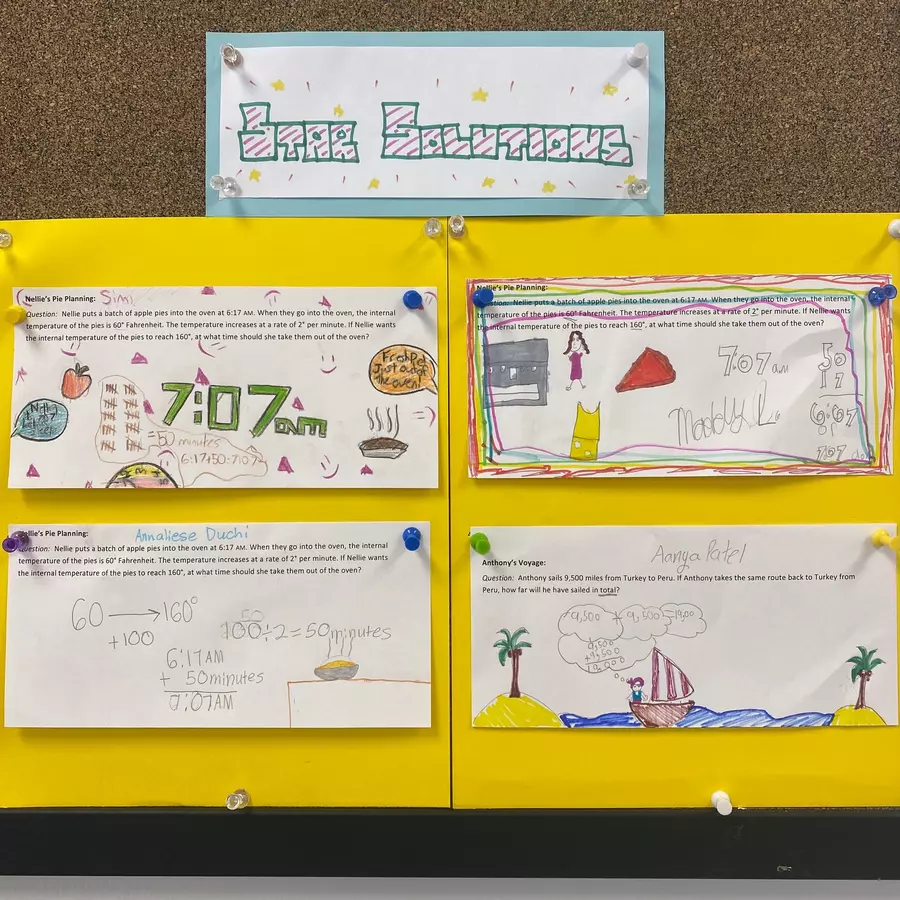 STAR SOLUTIONS
Nellie's Pie Planning: Simi
Question: Nellie puts a batch of apple pies into the oven at 6:17 AM. When they go into the oven, the internal
temperature of the pies is 60° Fahrenheit. The temperature increases at a rate of 2° per minute. If Nellie wants
the internal temperature of the pies to reach 160°, at what time should she take them out of the oven?
Fresh Pie!
Just out of
the oven!
7:07am
=50 minutes
6:17+50=7:07
Nellie's Pie Planning:
Question: Nellie puts a batch of apple pies into the oven at 6:17 AM. When they go into the oven, the internal
temperature of the pies is 60° Fahrenheit. The temperature increases at a rate of 2° per minute. If Nellie wants
the internal temperature of the pies to reach 160°, at what time should she take them out of the oven?
7:07 am
50
17
Nellie's Pie Planning: Annaliese Duchi
Question: Nellie puts a batch of apple pies into the oven at 6:17 AM. When they go into the oven, the internal
temperature of the pies is 60° Fahrenheit. The temperature increases at a rate of 2° per minute. If Nellie wants
the internal temperature of the pies to reach 160°, at what time should she take them out of the oven?
60 → 160°
+100
50
100÷2=50minutes
6:17AM
+ 50minutes
7:07AM
Aanya Patel
Anthony's Voyage:
Question: Anthony sails 9,500 miles from Turkey to Peru. If Anthony takes the same route back to Turkey from
Peru, how far will he have sailed in total?
9,500 + 9,500=19,00
9,500
+9,500
19,000